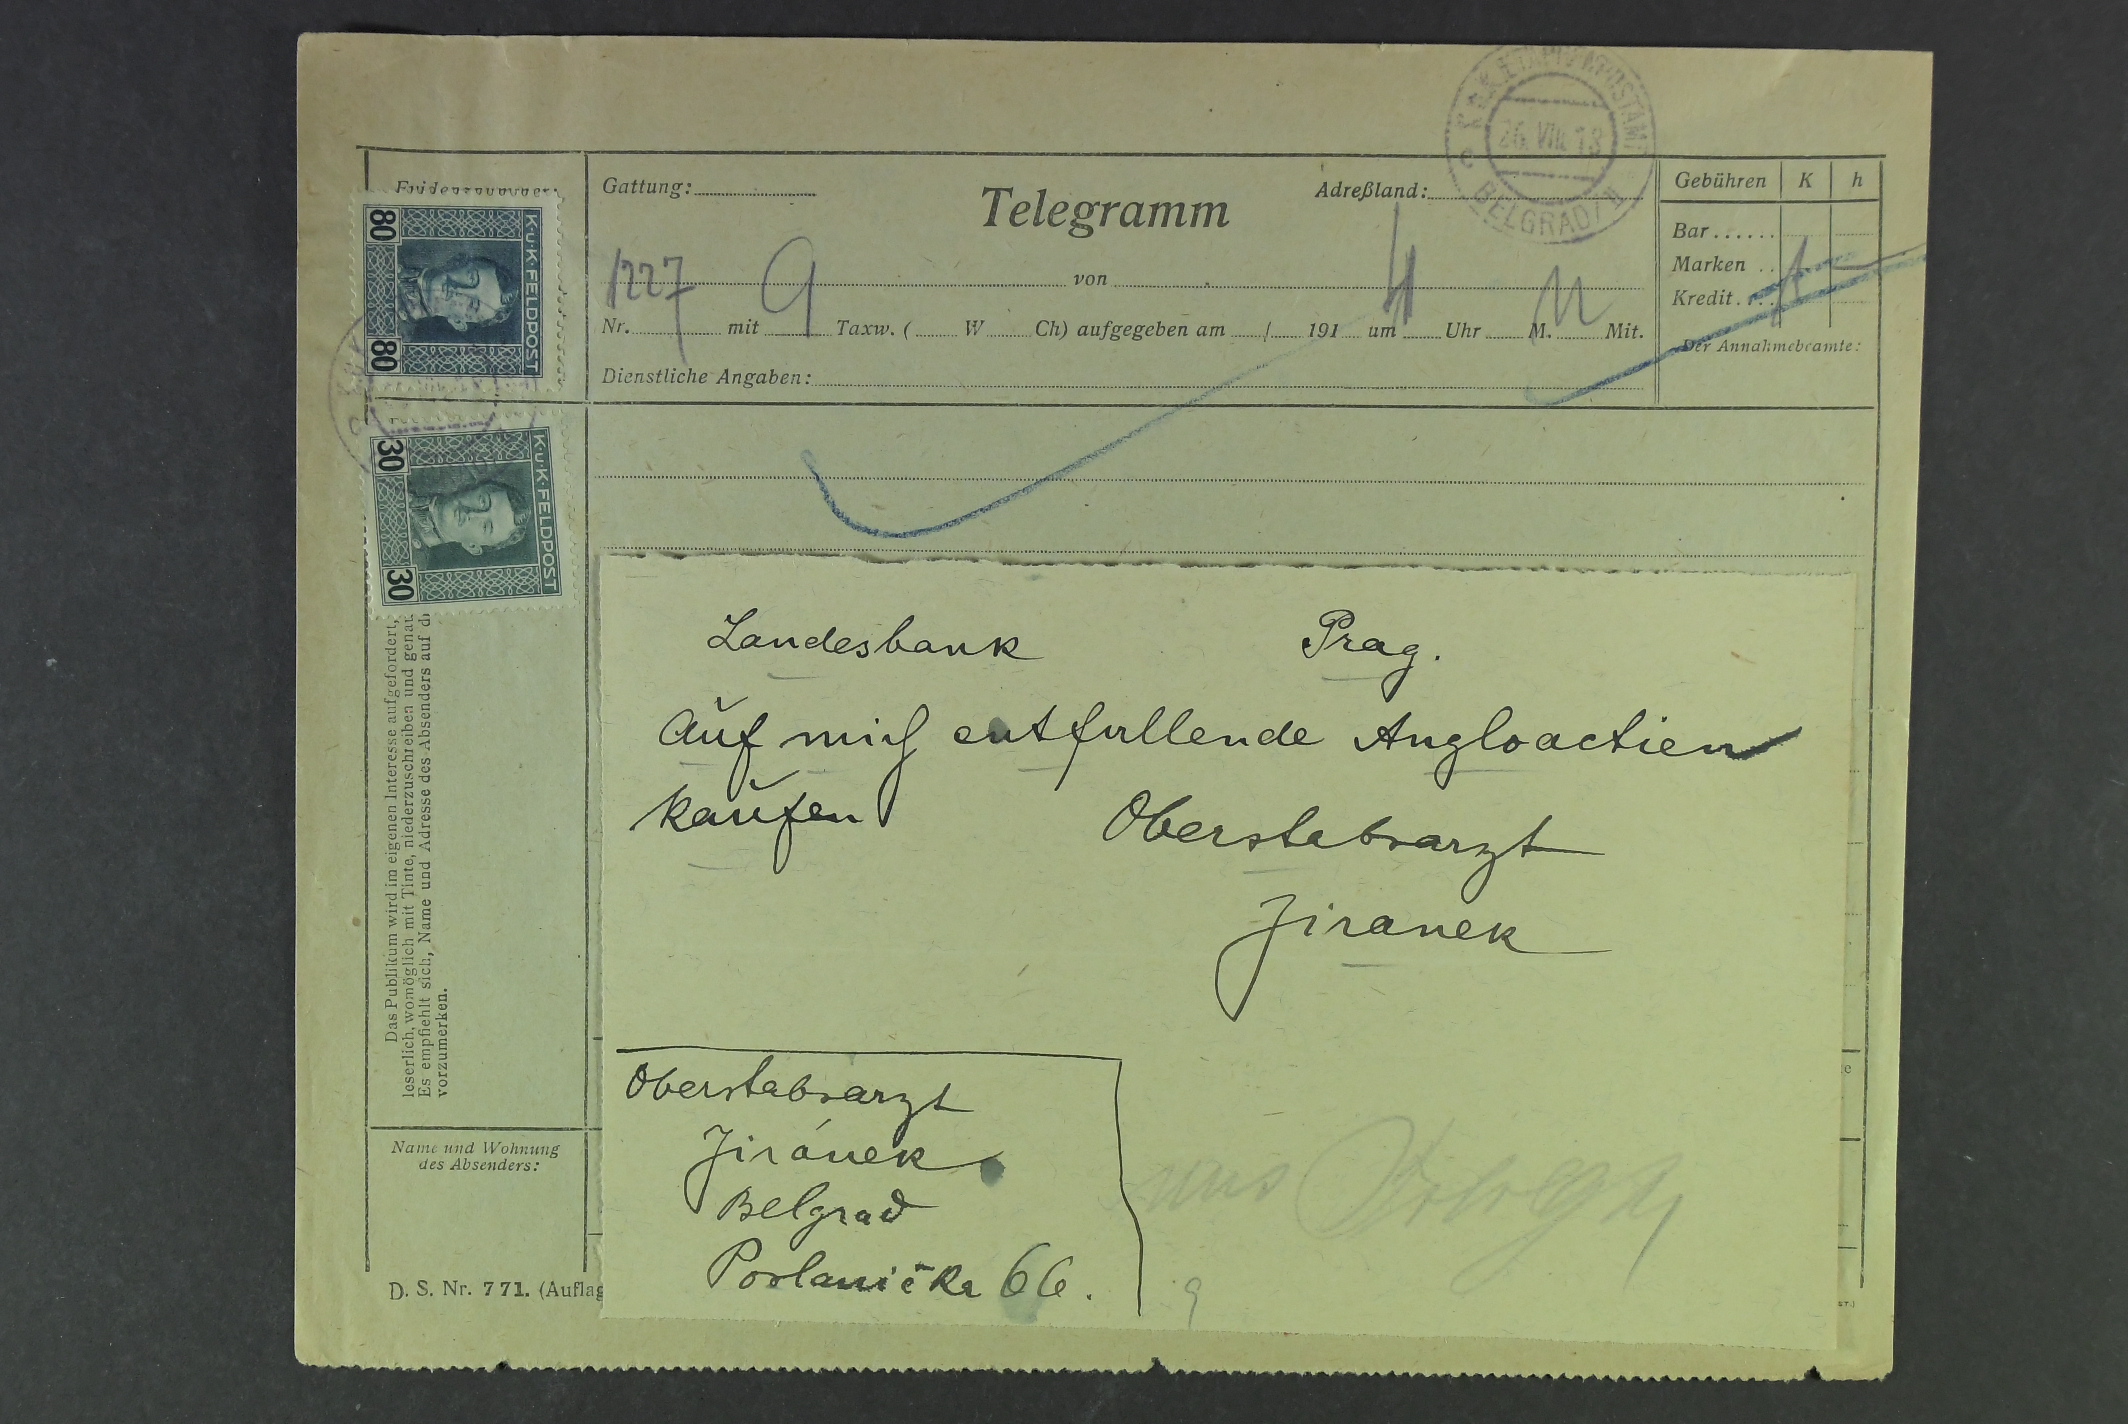 K.u.K. ETAPPENPOSTAMT
26. VIII. 18
c BELGRAD/
Gattung:
Telegramm
Adreßland:
Gebühren K h
Bar......
Marken ..
Kredit....
Der Annahmebeamte:
1227 9 von
Nr. mit Taxw. ( W Ch) aufgegeben am / 191 um Uhr M. Mit.
Dienstliche Angaben:
80 K.u.K. FELDPOST 80
30 K.u.K. FELDPOST 30
Das Publikum wird im eigenen Interesse aufgefordert,
leserlich, womöglich mit Tinte, niederzuschreiben und genau
Es empfiehlt sich, Name und Adresse des Absenders auf
vorzumerken.
Landesbank Prag.
Auf mich entfallende Angloactien
kaufen Oberstabsarzt
Jiranek
Name und Wohnung
des Absenders:
Oberstabsarzt
Jiránek
Belgrad
Poslanička 66.
9
D. S. Nr. 771. (Auflag